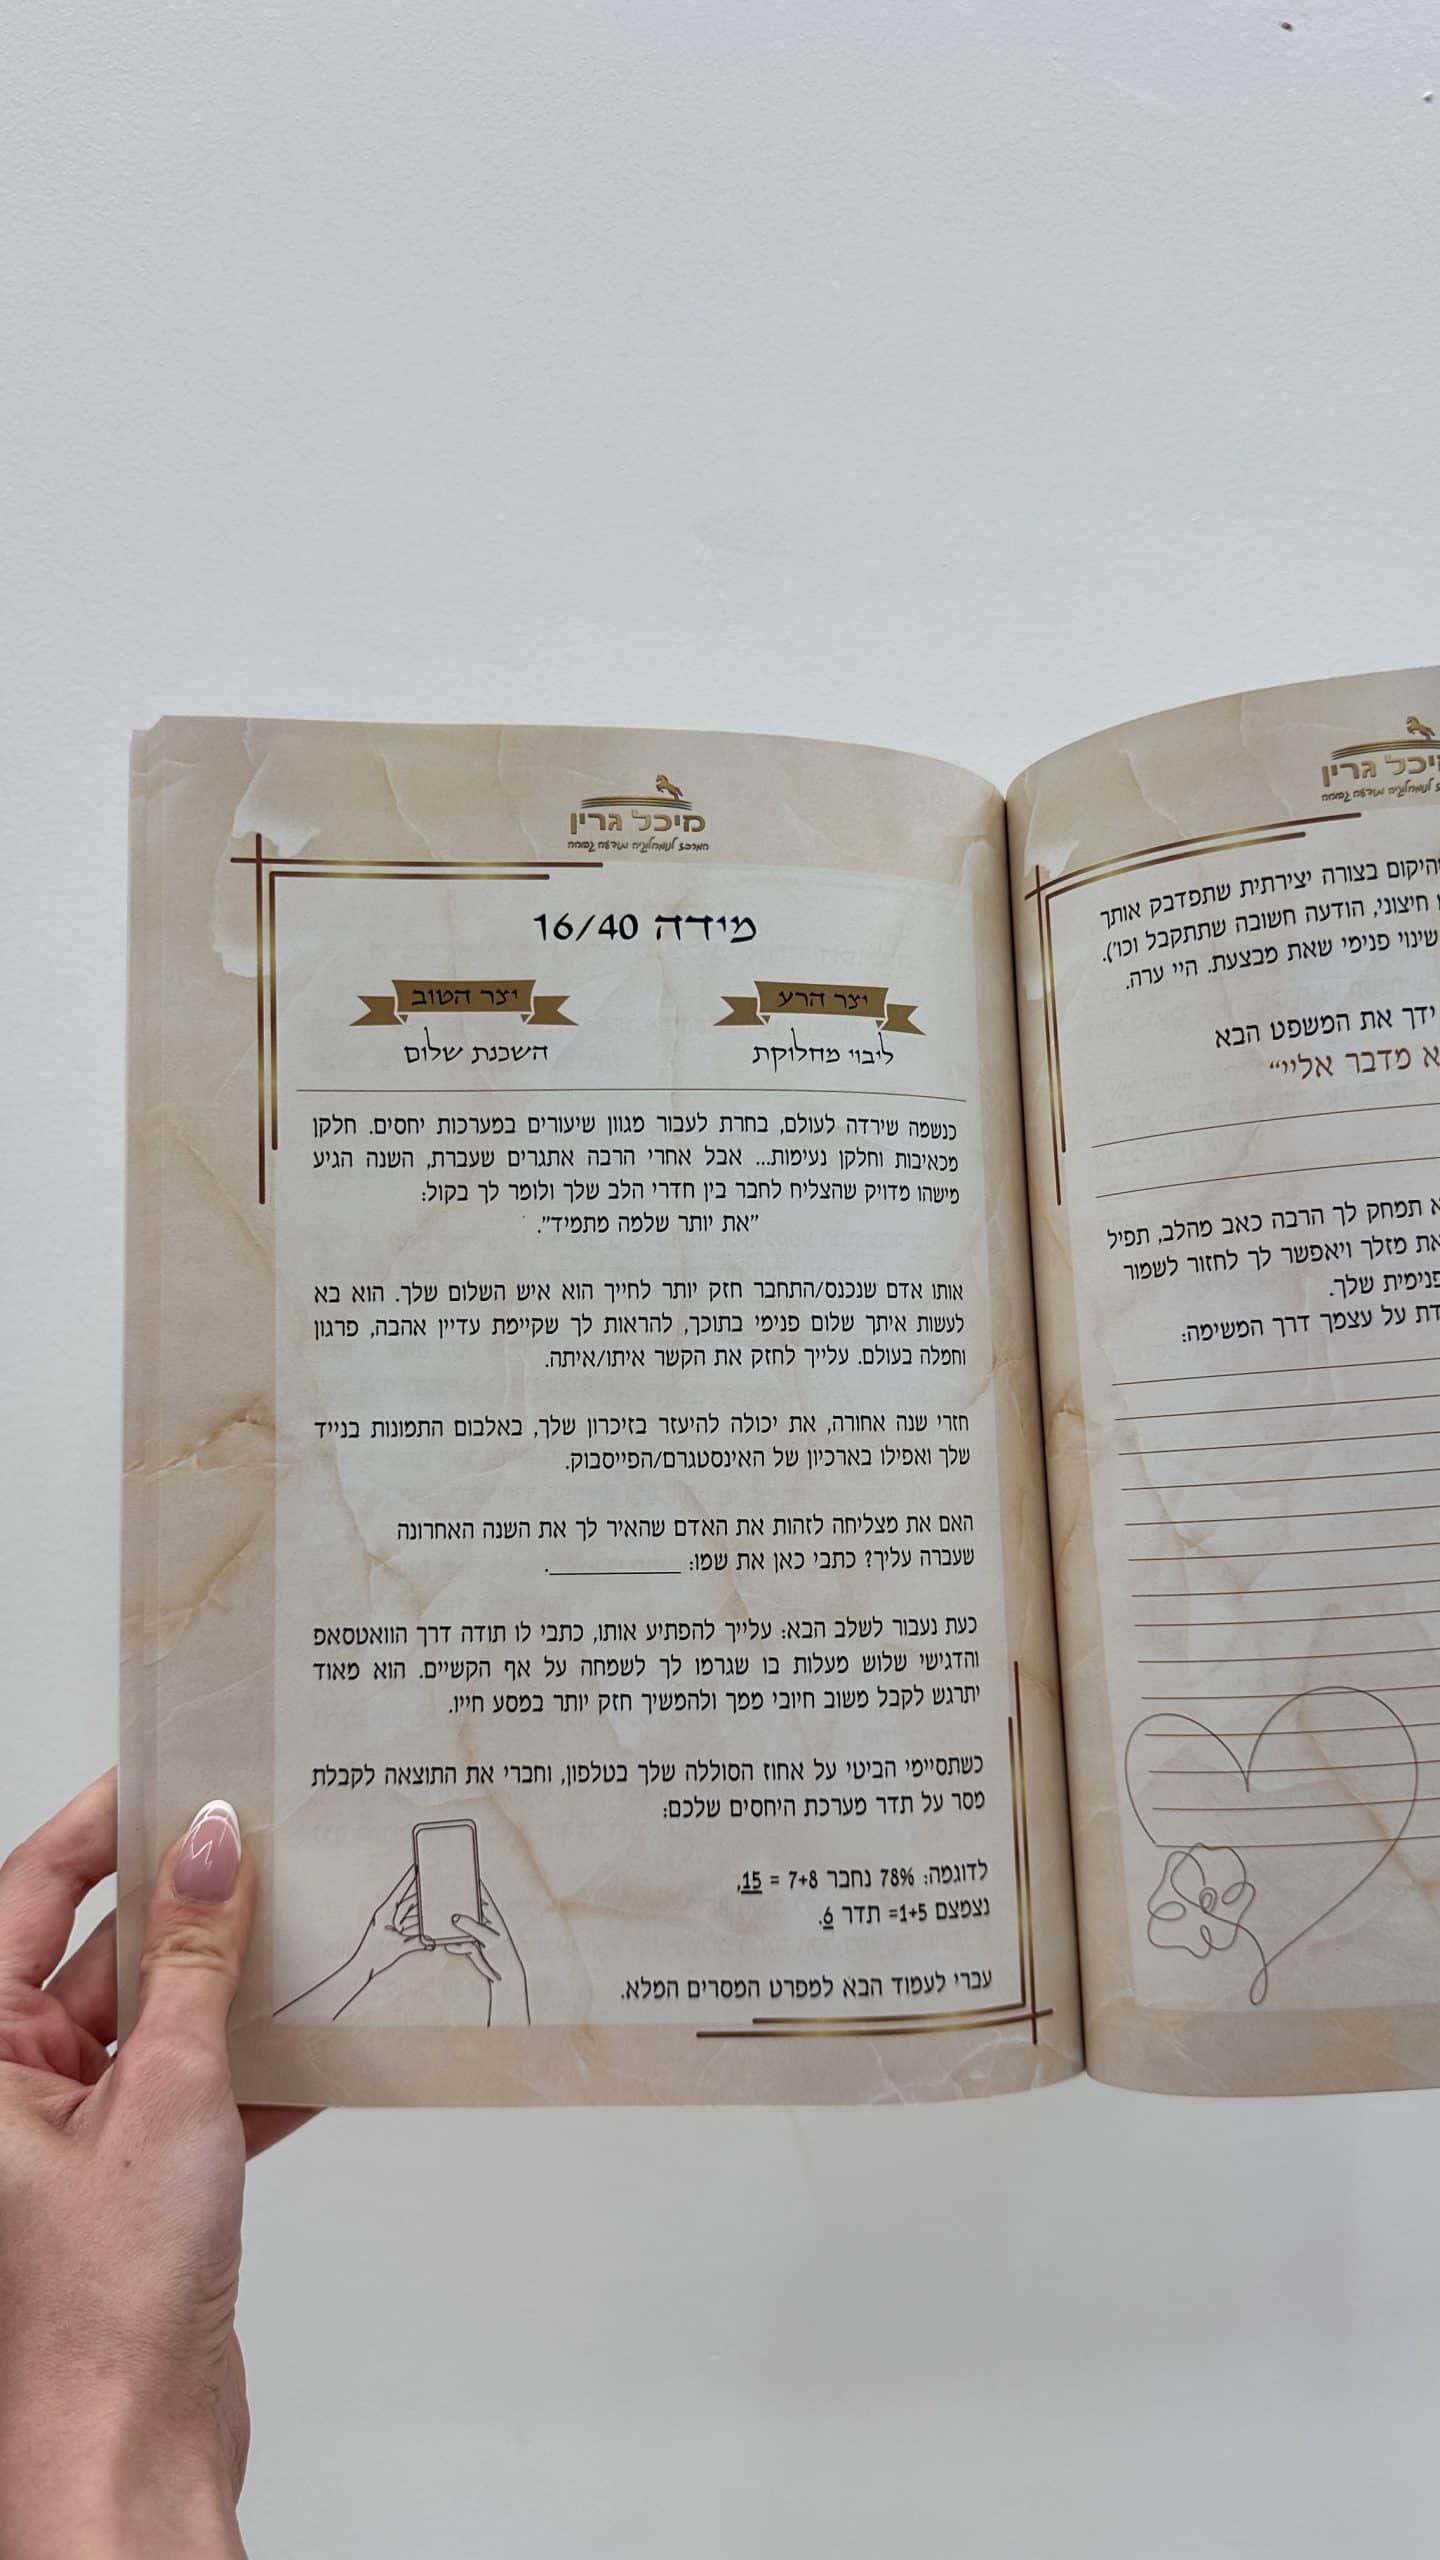 מיכל גרין
המרכז לנומרולוגיה ותודעה גבוהה
מידה 16/40
יצר הרע
יצר הטוב
ליבוי מחלוקת
השכנת שלום
כנשמה שירדה לעולם, בחרת לעבור מגוון שיעורים במערכות יחסים. חלקן
מכאיבות וחלקן נעימות... אבל אחרי הרבה אתגרים שעברת, השנה הגיע
מישהו מדויק שהצליח לחבר בין חדרי הלב שלך ולומר לך בקול:
"את יותר שלמה מתמיד".
אותו אדם שנכנס/התחבר חזק יותר לחייך הוא איש השלום שלך. הוא בא
לעשות איתך שלום פנימי בתוכך, להראות לך שקיימת עדיין אהבה, פרגון
וחמלה בעולם. עלייך לחזק את הקשר איתו/איתה.
חזרי שנה אחורה, את יכולה להיעזר בזיכרון שלך, באלבום התמונות בנייד
שלך ואפילו בארכיון של האינסטגרם/הפייסבוק.
האם את מצליחה לזהות את האדם שהאיר לך את השנה האחרונה
שעברה עליך? כתבי כאן את שמו: __________.
כעת נעבור לשלב הבא: עלייך להפתיע אותו, כתבי לו תודה דרך הוואטסאפ
והדגישי שלוש מעלות בו שגרמו לך לשמחה על אף הקשיים. הוא מאוד
יתרגש לקבל משוב חיובי ממך ולהמשיך חזק יותר במסע חייו.
כשתסיימי הביטי על אחוז הסוללה שלך בטלפון, וחברי את התוצאה לקבלת
מסר על תדר מערכת היחסים שלכם:
לדוגמה: 78% נחבר 7+8 = 15,
נצמצם 1+5= תדר 6.
עברי לעמוד הבא למפרט המסרים המלא.
גרין
היקום בצורה יצירתית שתפדבק אותך
חיצוני, הודעה חשובה שתתקבל וכו').
שינוי פנימי שאת מבצעת. היי ערה.
ידך את המשפט הבא
מדבר אליי"
תמחק לך הרבה כאב מהלב, תפיל
את מזלך ויאפשר לך לחזור לשמור
פנימית שלך.
על עצמך דרך המשימה: